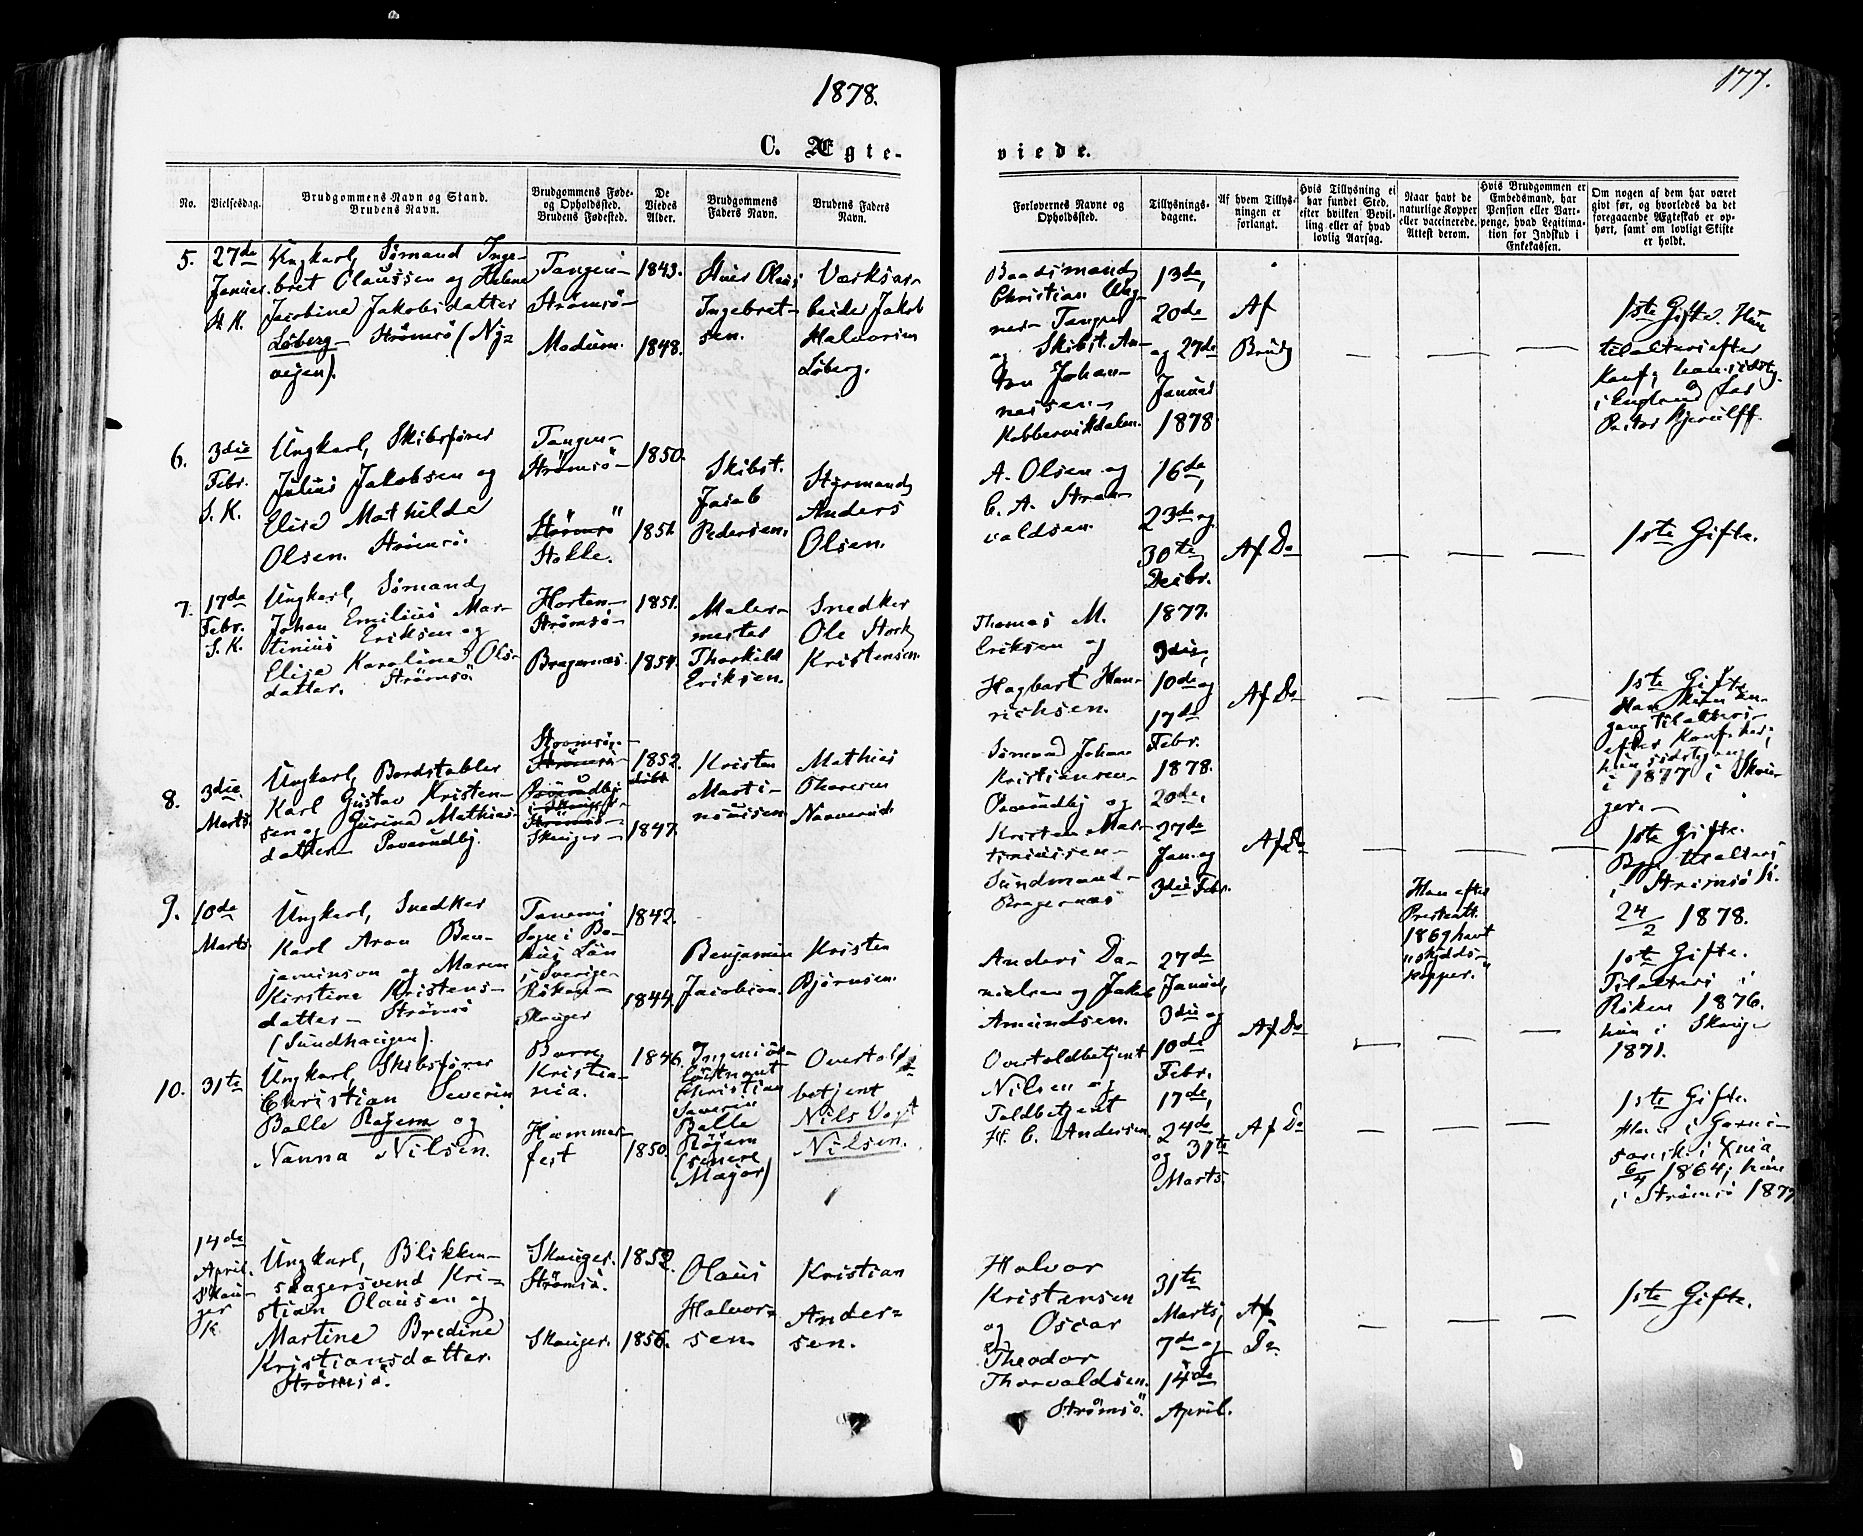 1878.
177.
C. Ægte-
viede.
No.
Vielsesdag.
Brudgommens Navn og Stand.
Brudens Navn.
Brudgommens Føde-
og Opholdssted.
Brudens Fødested.
De
Viedes
Alder.
Brudgommens
Faders Navn.
Brudens Faders
Navn.
Forlovernes Navne og
Opholdssted.
Tillysnings-
dagene.
Af hvem Tillys-
ningen er
forlangt.
Hvis Tillysning ei
har fundet Sted,
efter hvilken Bevil-
ling eller af hvad
lovlig Aarsag.
Naar havt de
naturlige Kopper
eller vaccinerede.
Attest derom.
Hvis Brudgommen er
Embedsmand, har
Pension eller Vart-
penge, hvad Legitima-
tion for Indskud i
Enkekassen.
Om nogen af dem har været
gift før, og hvorledes da det
foregaaende Ægteskab er op-
hørt, samt om lovligt Skifte
er holdt.
5.
27de
Januar.
Ungkarl, Sømand Inge-
bret Olaussen og Helene
Jacobine Jakobsdatter
Løberg – Strømsö (Ny-
veien).
Tangen –
Strömsö –
Modum.
1843.
1848.
Olaus
Ingebret-
sen.
Værksar-
beider Jakob
Halvorsen
Løberg.
Baadsmand
Christian
Tangen
og Skibst. An-
ton Johan-
nessen –
Kobbervikdalen.
13de,
20de
og 27de
Januar
1878.
Af
Brudg
1ste Gifte. Hun
tilalters efter
Konf; han sidstg.
i England hos
Pastor Kjerulff.
6.
3die
Febr.
S. K.
Ungkarl, Skibsfører
Julius Jakobsen og
Elise Mathilde
Olsen. Strömsö.
Tangen –
Strømsö –
Strömsö
1850.
1851.
Skibst.
Jacob
Pedersen.
Styrmand
Anders
Olsen.
A. Olsen og
C. A.
valdsen.
16de,
23de og
30te
Decbr.
1877.
Af Do
1ste Gifte.
7.
17de
Febr.
S. K.
Ungkarl, Sømand
Johan Emilius Mar-
tinius Eriksen og
Elise Karoline Ols-
datter. Strømsö.
Horten –
Strömsö –
Bragernæs.
1851.
1854.
Maler-
mester
Thorkild
Eriksen.
Snedker
Ole Stork
Kristensen.
Thomas M.
Eriksen og
Hagbart Hen-
richsen.
3die,
10de og
17de
Febr.
1878.
Af Do
1ste Gifte
8.
3die
Marts
Ungkarl, Bordstabler
Karl Gustav Kristen-
sen og Gurine Mathias-
datter – Paverudby.
Strømsö –
Skauger –
1852.
1847.
Kristen
Marti-
niussen
Mathias
Thoresen
Narverud
Sømand Johan
Kristiansen –
Paverudby og
Kristen Mar-
tiniussen –
Sundmand –
Bragernæs
20de,
27de
Jan. og
3die Febr.
Af Do
1ste Gifte.
Begge tilalters
i Strömsö K.
24/2 1878.
9.
10de
Marts.
Ungkarl, Snedker
Karl Aron Ben-
jaminson og Maren
Kirstine Kristens-
datter – Strömsö
(Sundhaugen).
Tanems
Sogn i Bo-
hus Län
i Sverige –
Röken –
Skauger
1842.
1844.
Benjamin
Jacobson.
Kristen
Bjørnsen.
Anders Da-
nielsen og Jakob
Amundsen.
27de
Januar,
3die og
10de
Febr.
Af Do
Han efter
Presteatt.
1869 havt
"skydds-
kopper."
1ste Gifte.
Tilalters i
Röken 1876.
hun i Skauger
1871.
10.
31te
Ungkarl, Skibsfører
Christian Severin
Balle Røyem og
Nanna Nilsen.
Borre
Kristia-
nia.
Hammer-
fest
1846.
1850.
Ingeniør-
løitnant
Christian
Severin
Balle
Røyem
(senere
Major)
Overtold-
betjent
Nils Vogt
Nilsen.
Overtoldbetjent
Nilsen og
Toldbetjent
H. C. Andersen
17de,
24de
og 31te
Marts
Af Do
1ste Gifte.
Han i Garni-
sonsk. i Xnia
6/4 1864; hun
i Strömsö 1877
14de
April.
Skau-
ger
K
Ungkarl, Blikken-
slagersvend Kri-
stian Olausen og
Martine Bredine
Kristiansdatter.
Strömsö.
Skauger.
Strömsö.
Skauger.
1852.
1856.
Olaus
Halvor-
sen.
Kristian
Ander-
sen.
Halvor
Kristensen
og Oscar
Theodor
Thorvaldsen.
Strömsö.
31te
Marts,
7de og
14de
April.
Af
Do
1ste Gifte.